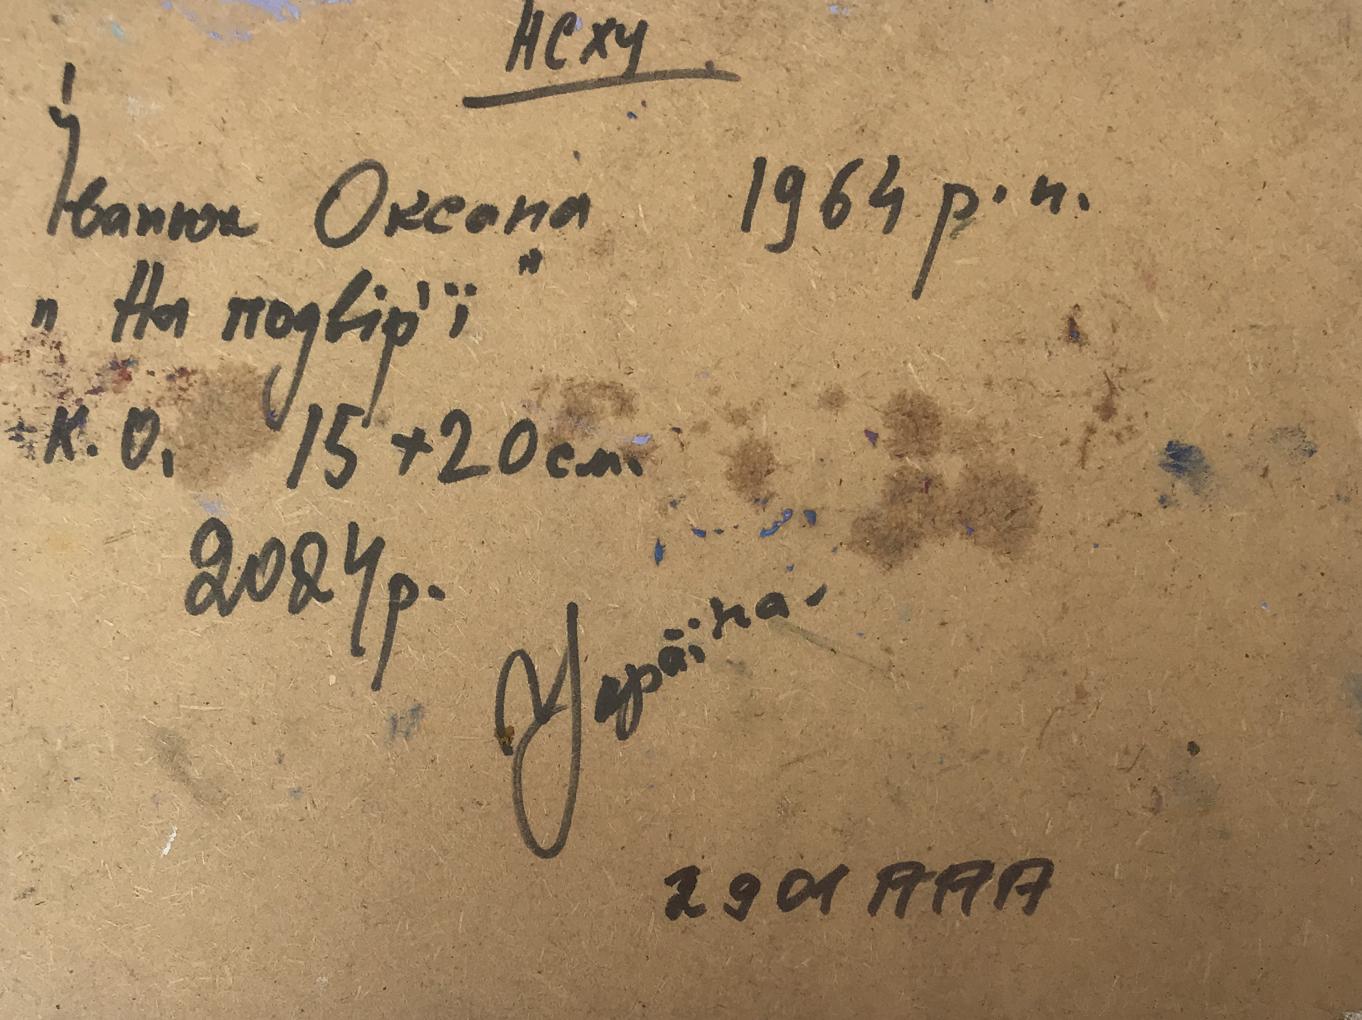 НСХУ
Іванюк Оксана 1964 р.н.
„На подвір'ї"
К.О. 15+20 см.
2024р.
Україна.
2901 AAA